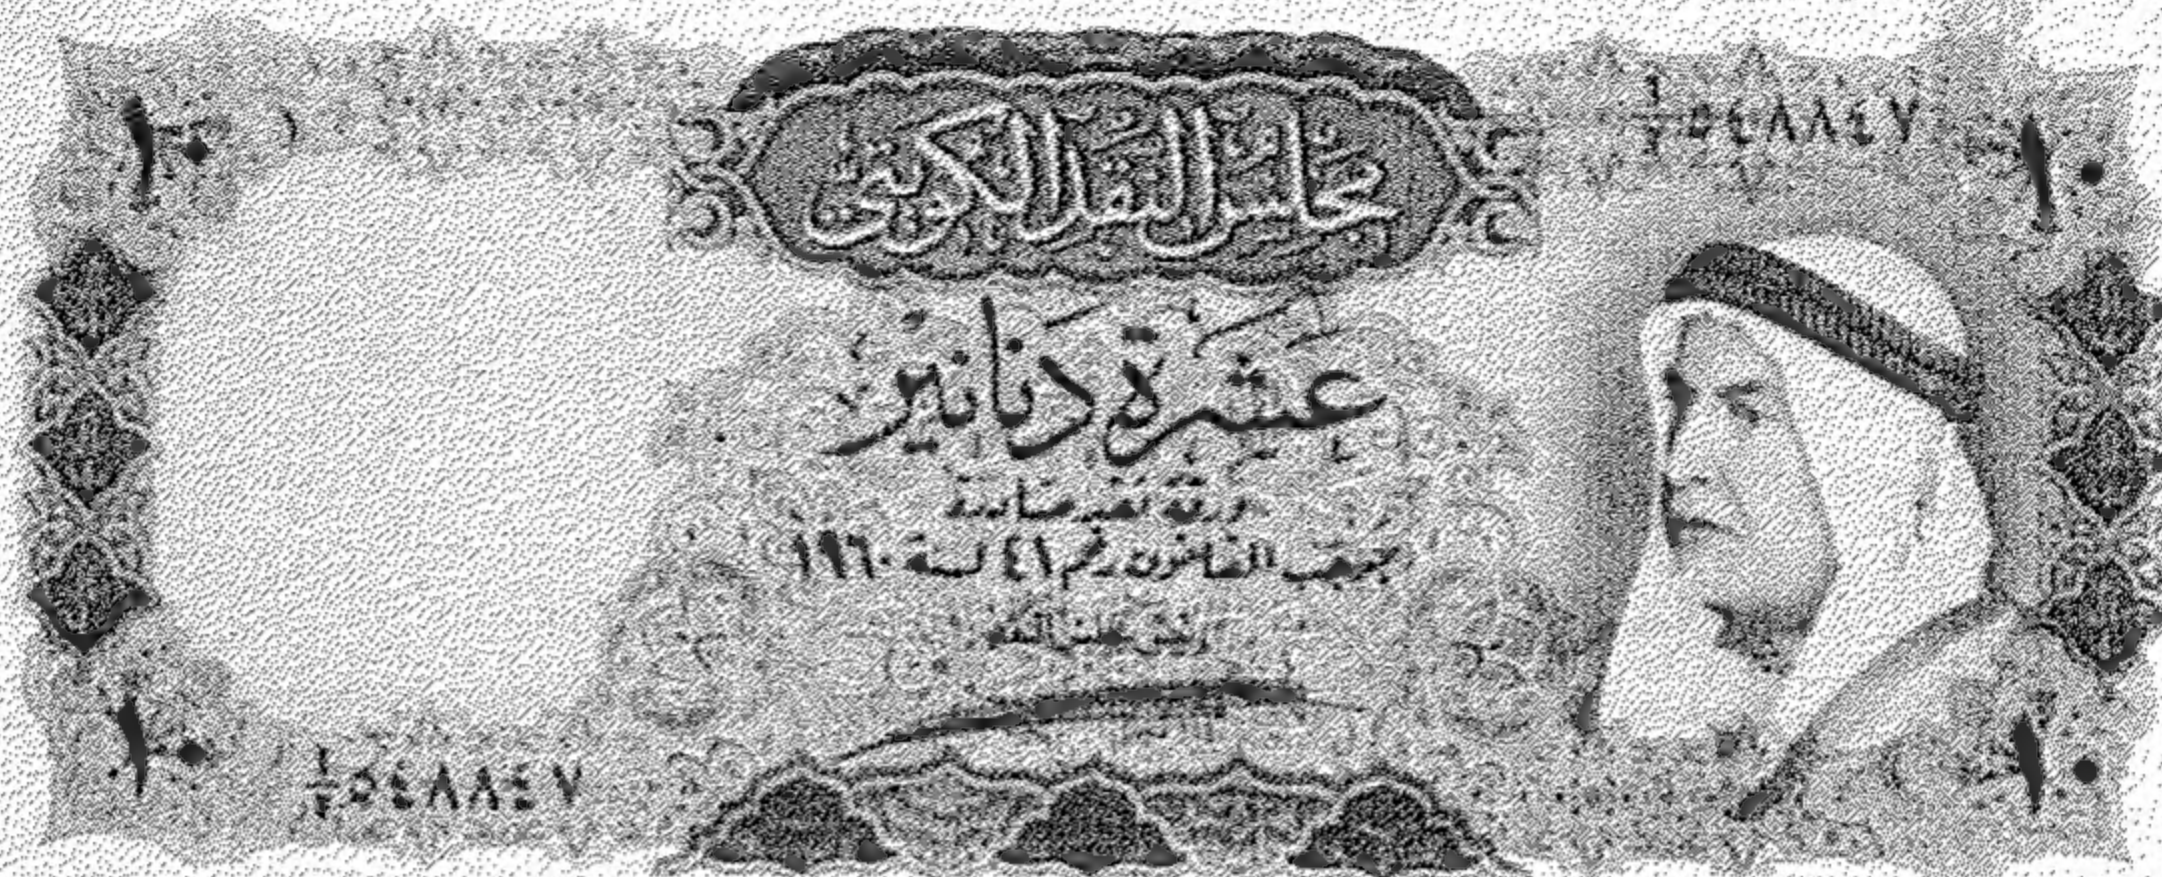 ١٠
١/٢ ٥٤٨٨٤٧
١٠
مجلس النقد الكويتي
عشرة دنانير
ورقة نقدية صادرة
بموجب القانون رقم ٤١ لسنة ١٩٦٠
رئيس مجلس النقد
١٠
١/٢ ٥٤٨٨٤٧
١٠